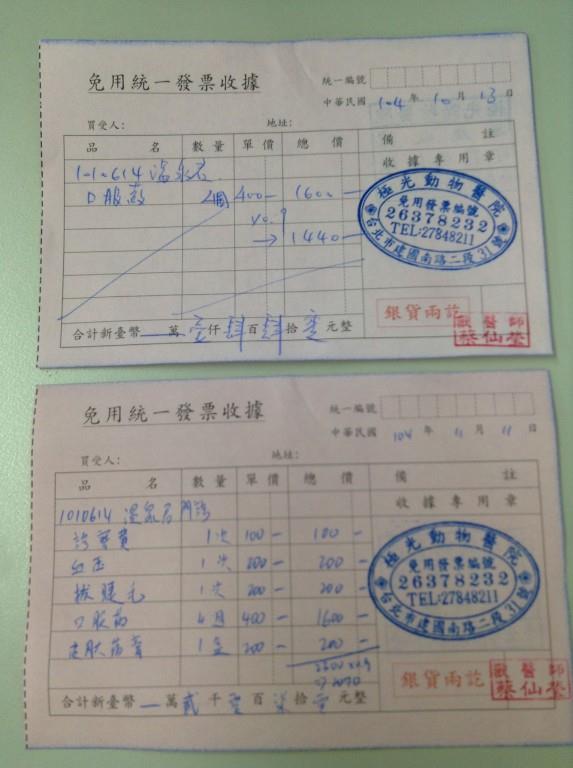 免用統一發票收據
統一編號
中華民國 104 年 10 月 13 日
買受人: 地址:
品 名 數量 單價 總 價 備 註
1010614 溫泉石
收據專用章
口服藥 4個 400- 1600-
→ 1440-
極光動物醫院
免用發票編號
26378232
TEL:27848211
台北市建國南路二段31號
銀貨兩訖
獸醫師
蔡仙瑩
合計新臺幣 一萬壹仟肆百肆拾零元整
免用統一發票收據
統一編號
中華民國 104 年 11 月 11 日
買受人: 地址:
品 名 數量 單價 總 價 備 註
1010614 溫泉石 門診
收據專用章
診察費 1次 100- 100-
血压 1次 200- 200-
拔腿毛 1次 200- 200-
口服藥 4月 400- 1600-
皮肤药膏 1盒 200- 200-
極光動物醫院
免用發票編號
26378232
TEL:27848211
台北市建國南路二段31號
2070
銀貨兩訖
獸醫師
蔡仙瑩
合計新臺幣 一萬貳千零百柒拾零元整